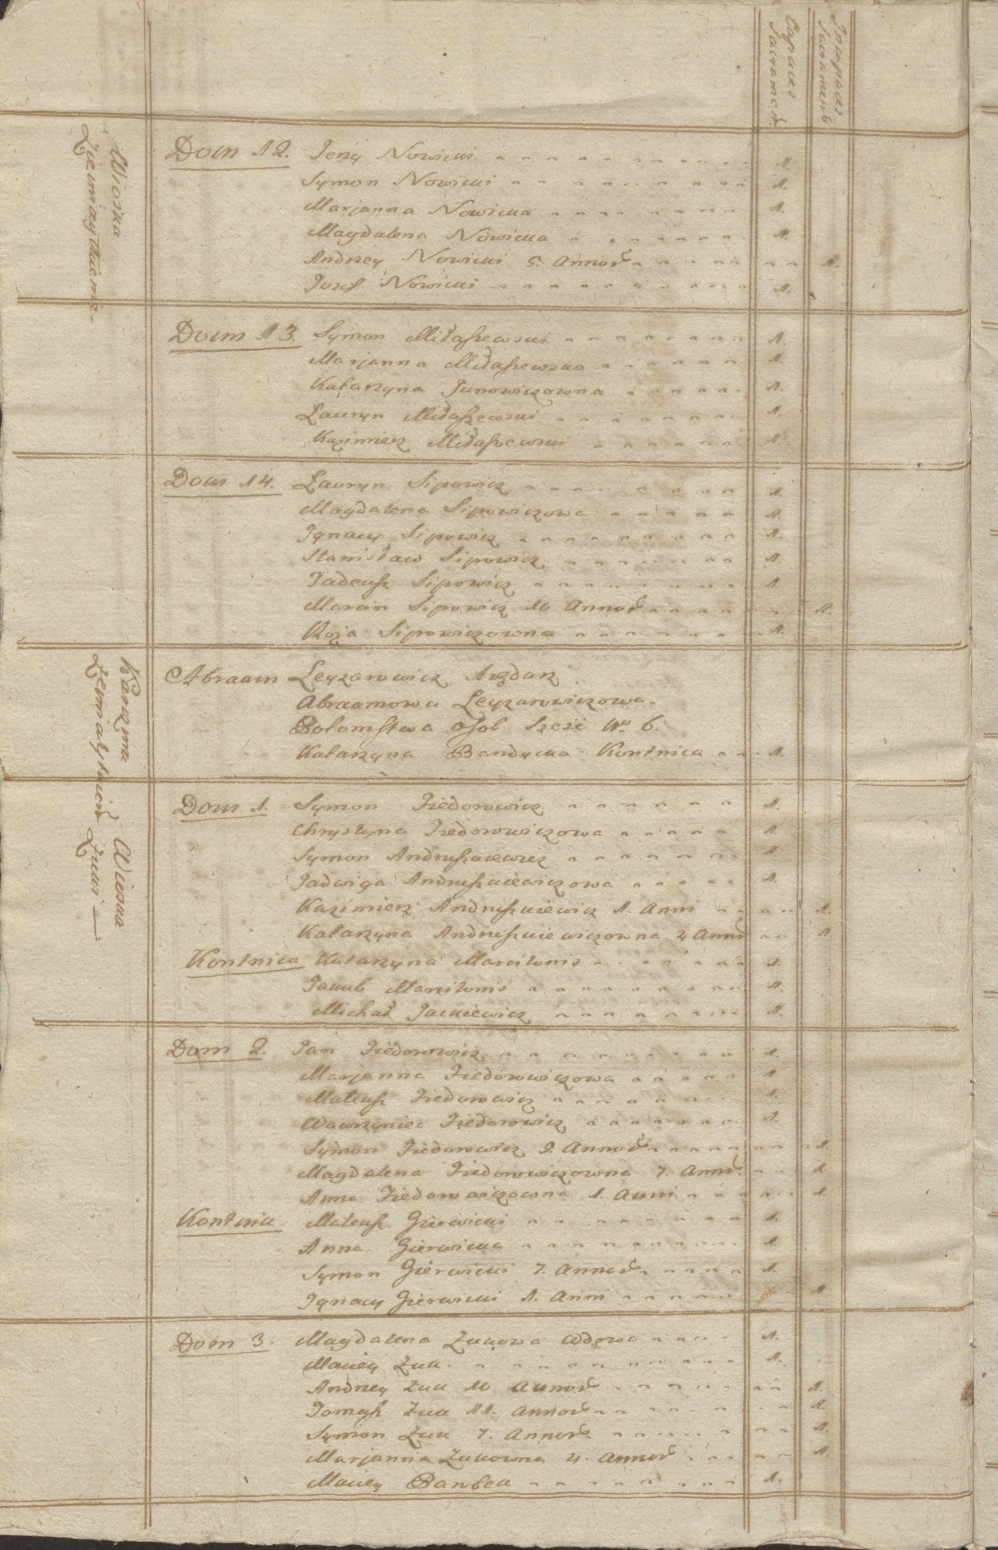 Capaces Sacrament.
Incapaces Sacrament.
Wioska
Dom 12. Jerzy Nowicki 1.
Symon Nowicki 1.
Marjanna Nowicka 1.
Magdalena Nowicka 1.
Andrzey Nowicki 5. Annor. 1.
Jozef Nowicki 1.
Dom 13. Symon Miłaszewski 1.
Marjanna Miłaszewska 1.
Katarzyna Janowiczowna 1.
Łauryn Miłaszewski 1.
Kazimierz Miłaszewski 1.
Dom 14. Łauryn Sipowicz 1.
Magdalena Sipowiczowa 1.
Ignacy Sipowicz 1.
Stanisław Sipowicz 1.
Tadeusz Sipowicz 1.
Marcin Sipowicz 10 Annor. 1.
Róża Sipowiczowna 1.
Karczma
Abraam Leyzarowicz Arędarz
Abraamowa Leyzarowiczowa.
Potomstwa osob sześć No 6.
Katarzyna Bandycka Kontnica 1.
Wioska
Dom 1. Symon Fiedorowicz 1.
Chrystyna Fiedorowiczowa 1.
Symon Andruszkiewicz 1.
Jadwiga Andruszkiewiczowa 1.
Kazimierz Andruszkiewicz 1. Anni 1.
Katarzyna Andruszkiewiczowna 4 Annor 1.
Kontnica Katarzyna 1.
Jakub 1.
Michał Jackiewicz 1.
Dom 2. Jan Fiedorowicz 1.
Marjanna Fiedorowiczowa 1.
Mateusz Fiedorowicz 1.
Wawrzyniec Fiedorowicz 1.
Symon Fiedorowicz 9. Annor. 1.
Magdalena Fiedorowiczowna 7. Annor. 1.
Anna Fiedorowiczowna 1. Anni 1.
Kontnik Mateusz Gierwicki 1.
Anna Gierwicka 1.
Symon Gierwicki 7. Annor. 1.
Ignacy Gierwicki 1. Anni 1.
Dom 3. Magdalena Żukowa Wdowa 1.
Maciey Żuk 1.
Andrzey Żuk 10 Annor. 1.
Tomasz Żuk 11. Annor. 1.
Symon Żuk 7. Annor. 1.
Marjanna Żukowna 4. Annor. 1.
Maciey 1.